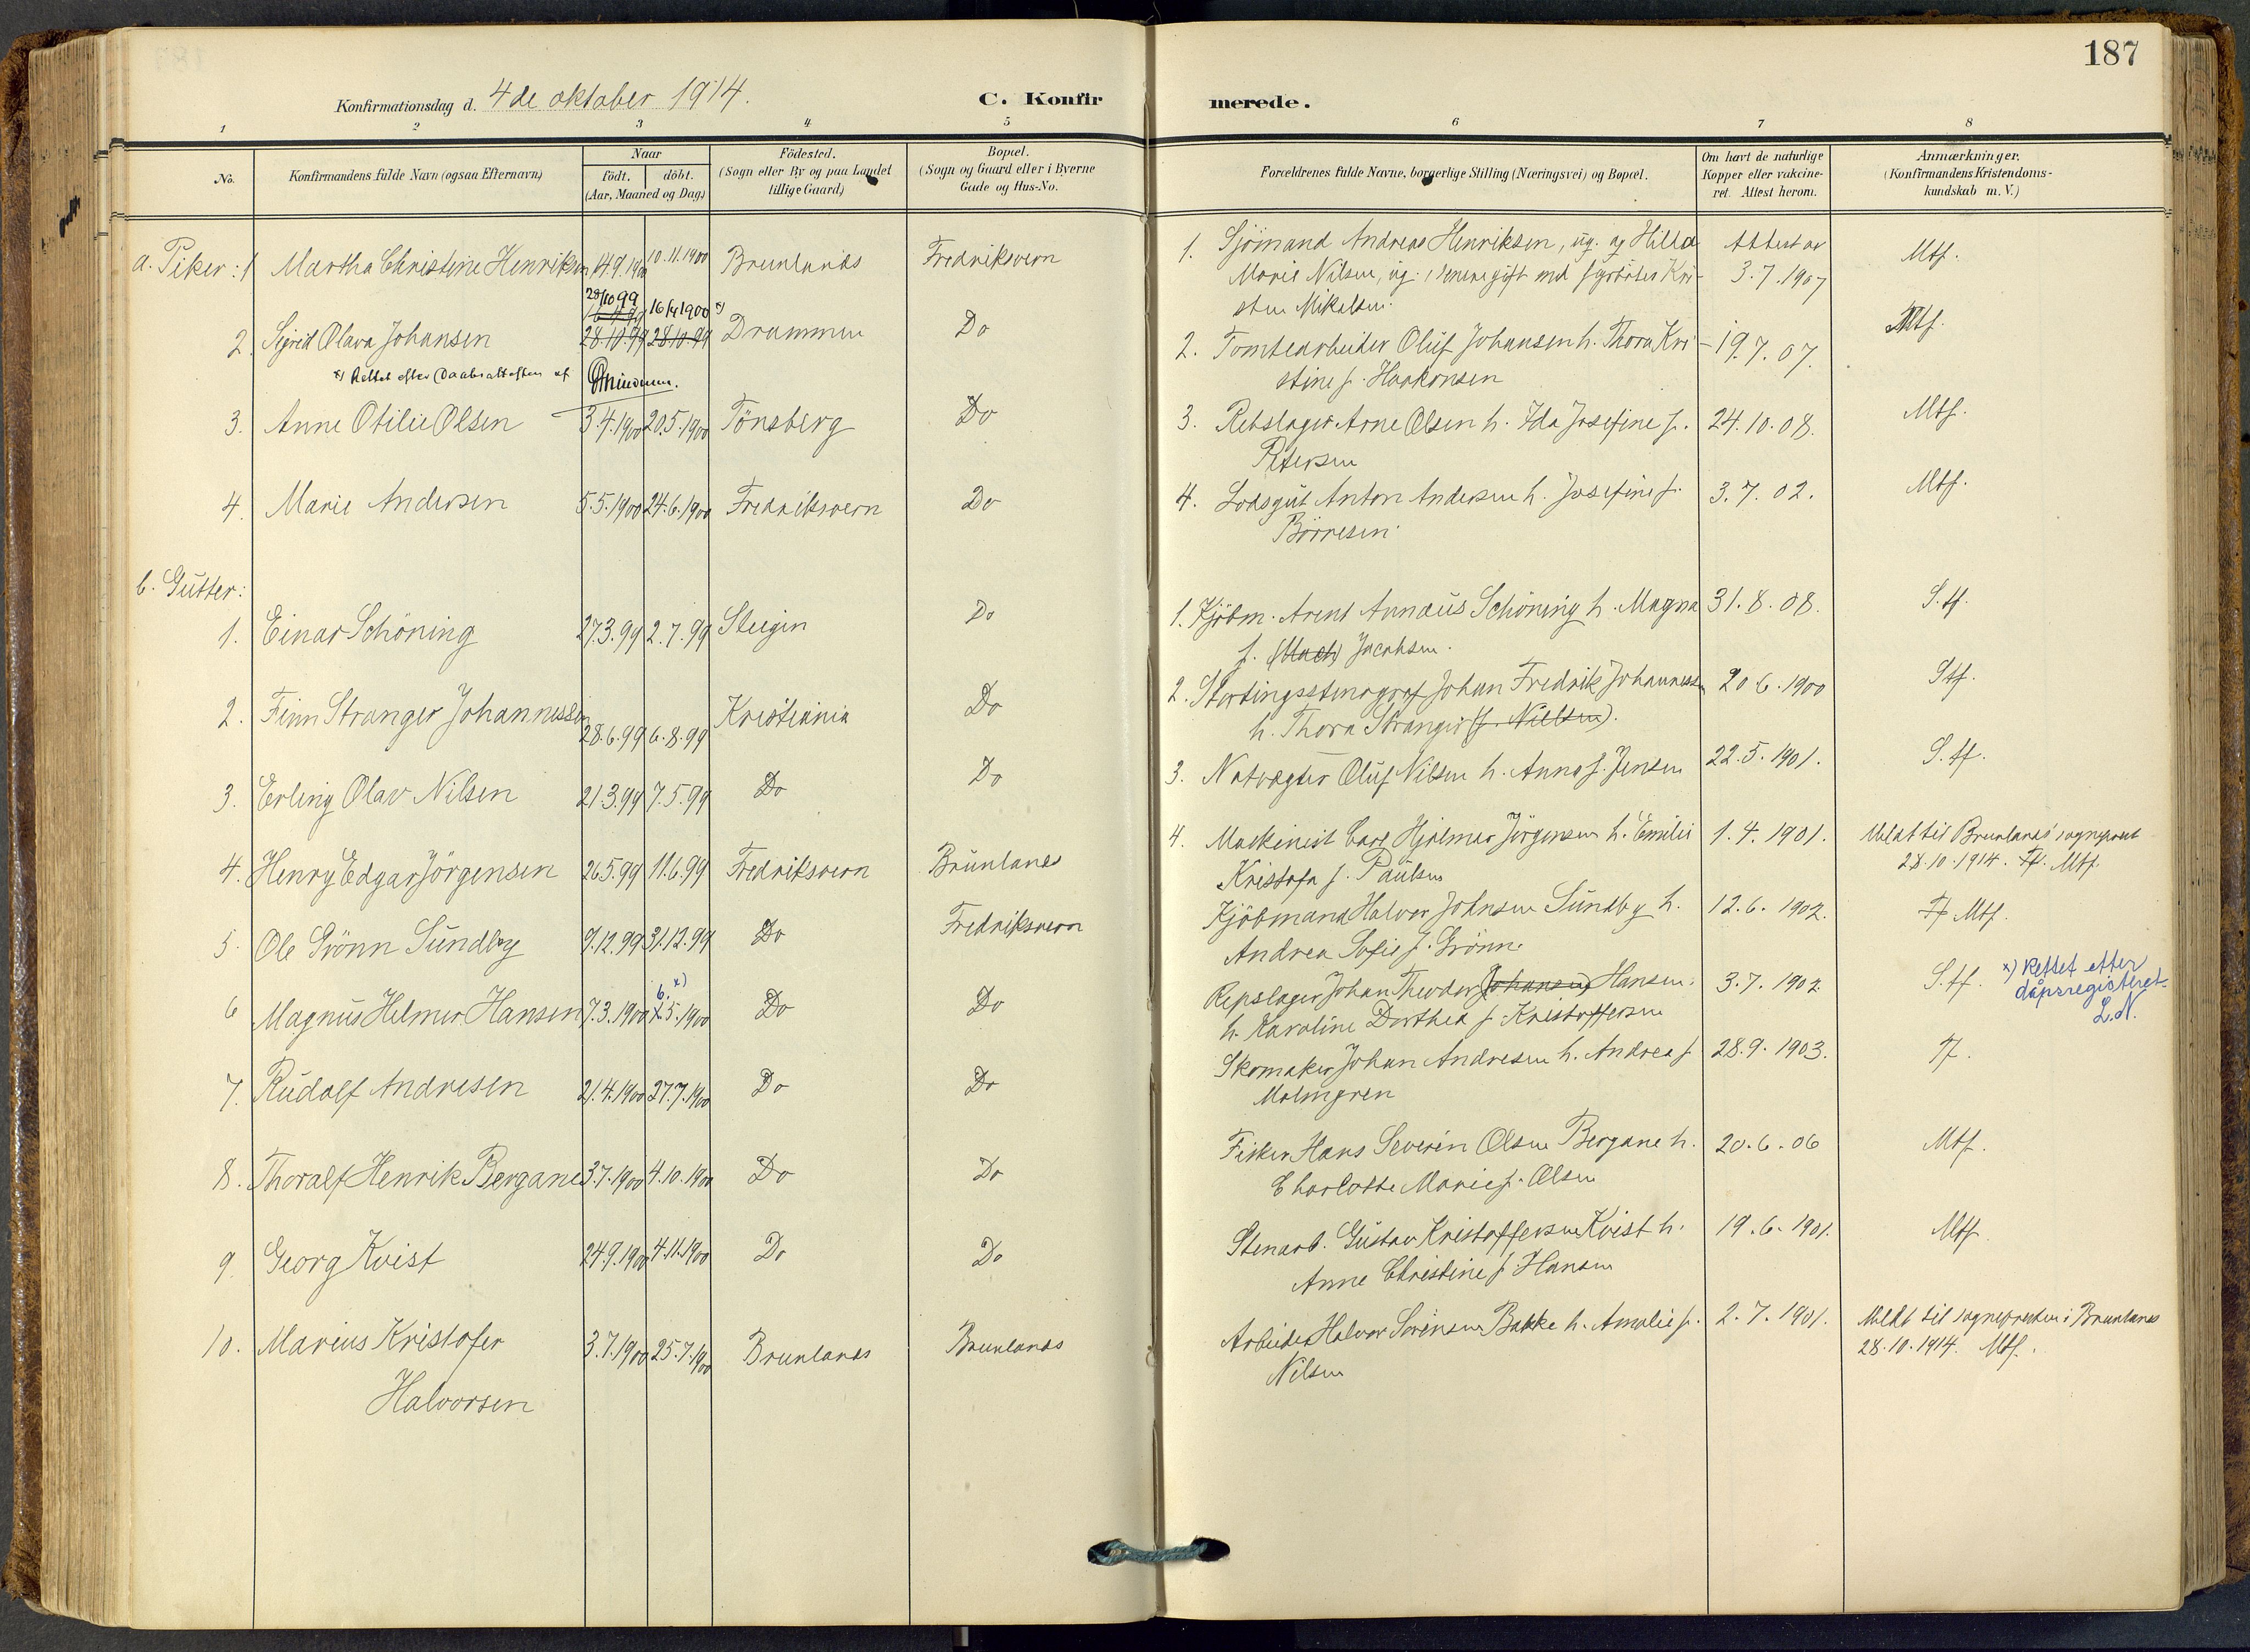 187
Konfirmationsdag d. 4de oktober 1914.
C. Konfir
merede.
1 2 3 4 5 6 7 8
No.
Konfirmandens fulde Navn (ogsaa Efternavn)
Naar
födt. döbt.
(Aar, Maaned og Dag)
Födested.
(Sogn eller By og paa Landet
tillige Gaard)
Bopæl.
(Sogn og Gaard eller i Byerne
Gade og Hus-No.
Forældrenes fulde Navne, borgerlige Stilling (Næringsvei) og Bopæl.
Om havt de naturlige
Kopper eller vakcine-
ret. Attest herom.
Anmærkninger.
(Konfirmandens Kristendoms-
kundskab m. V.)
a. Piker: 1 Martha Christine Henriksen 14.9.1900 10.11.1900 Brunlanes Fredriksvern
1. Sjömand Andreas Henriksen, ug. og Hilda Attest av Mtf.
Marie Nilsen, ug. senere gift med Kri- 3.7.1907
sten Mikalsen.
28/10 99 16/4 1900 x)
2. Sigrid Olava Johansen 28.10.99 28.10.99 Drammen Do
2. Tomtearbeider Oluf Johansen h. Thora Kri- 19.7.07. Mtf.
stine f. Haakonsen
x) Rettet efter Daabsattesten af
3. Anne Otilie Olsen 3.4.1900 20.5.1900 Tönsberg Do
3. Rebslager Arne Olsen h. Ida Josefine f. 24.10.08. Mtf.
Petersen
4. Marie Andersen 5.5.1900 24.6.1900 Fredriksvern Do
4. Lodsgut Anton Andersen h. Josefine f. 3.7.02. Mtf.
Börresen
b. Gutter:
1. Einar Schöning 27.3.99 2.7.99 Steigen Do
1. Kjöbm. Arent Annæus Schöning h. Magna 31.8.08. S.tf.
f. (Mach) Jacobsen.
2. Finn Stranger Johannessen 28.6.99 6.8.99 Kristiania Do
2. Stortingsstenograf Johan Fredrik Johannessen 20.6.1900 Stf.
h. Thora Stranger (f. Nielsen).
3. Erling Olav Nilsen 21.3.99 7.5.99 Do Do
3. Natvægter Oluf Nilsen h. Anna f. Jensen 22.5.1901. S.tf.
4. Henry Edgar Jörgensen 26.5.99 11.6.99 Fredriksvern Brunlanes
4. Maskinist Carl Hjalmar Jörgensen h. Emilie 1.4.1901. Meldt til Brunlanes sogneprest
Kristofa f. Paulsen 28.10.1914. Tf. Mtf.
5. Ole Grönn Sundby 9.12.99 31.12.99 Do Fredriksvern
Kjöbmand Halvor Johnsen Sundby h. 12.6.1902. Tf Mtf.
Andrea Sofie f. Grönn.
6 Magnus Helmer Hansen 7.3.1900 6. x) 5.1900 Do Do
Repslager Johan Theodor (Johansen) Hansen. 3.7.1902. S.tf. x) Rettet etter
h. Karoline Dorthea f. Kristoffersen dåpsregisteret.
L.N.
7. Rudolf Andresen 21.4.1900 27.7.1900 Do Do
Skomaker Johan Andresen h. Andrea f. 28.9.1903. Tf.
Malmgren
8. Thoralf Henrik Bergane 3.7.1900 4.10.1900 Do Do
Fisker Hans Severin Olsen Bergane h. 20.6.06 Mtf.
Charlotte Marie f. Olsen
9. Georg Kvist 24.9.1900 4.11.1900 Do Do
Stenarb. Gustav Kristoffersen Kvist h. 19.6.1901. Mtf.
Anne Christine f. Hansen
10. Marius Kristofer 3.7.1900 25.7.1900 Brunlanes Brunlanes
Halvorsen
Arbeider Halvor Sörensen Bakke h. Amalie f. 2.7.1901. Meldt til sognepresten i Brunlanes
Nilsen 28.10.1914. Mtf.